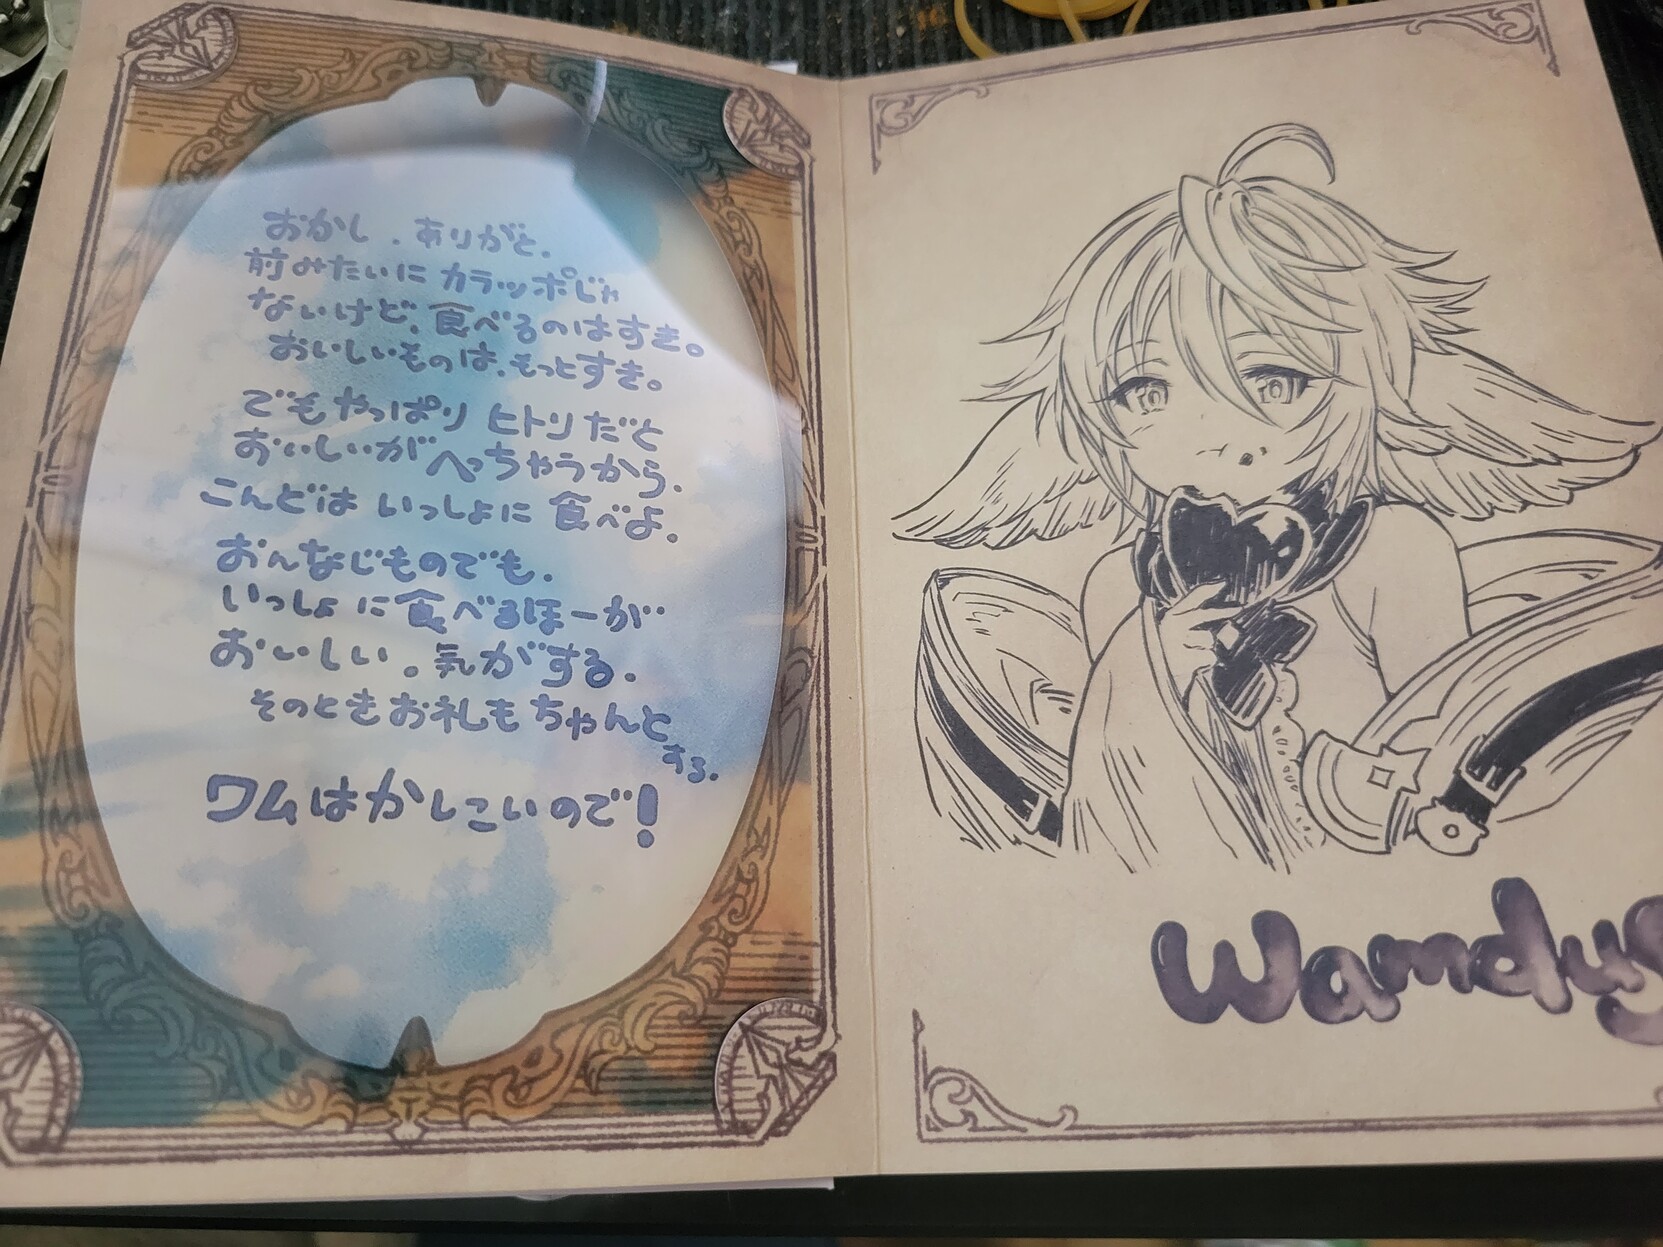 おかし、ありがと、
前みたいにカラッポじゃ
ないけど、食べるのはすき。
おいしいものは、もっとすき。
でもやっぱり ヒトリだと
おいしいがへっちゃうから、
こんどは いっしょに 食べよ。
おんなじものでも、
いっしょに食べるほーが
おいしい。気がする。
そのときお礼もちゃんと
する。
ワムはかしこいので!
Wamdus